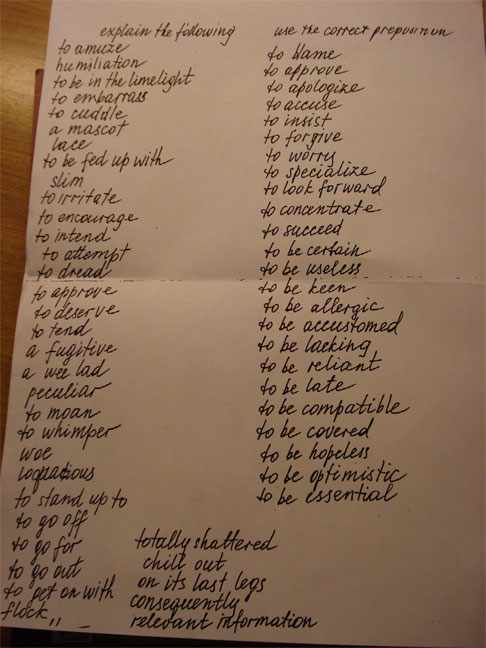 explain the following
to amuze
humiliation
to be in the limelight
to embarrass
to cuddle
a mascot
lace
to be fed up with
slim
to irritate
to encourage
to intend
to attempt
to dread
to approve
to deserve
to tend
a fugitive
a wee lad
peculiar
to moan
to whimper
woe
loquacious
to stand up to
to go off
to go for
to go out
to get on with
flock
totally shattered
chill out
on its last legs
consequently
relevant information
use the correct preposition
to blame
to approve
to apologize
to accuse
to insist
to forgive
to worry
to specialize
to look forward
to concentrate
to succeed
to be certain
to be useless
to be keen
to be allergic
to be accustomed
to be lacking
to be reliant
to be late
to be compatible
to be covered
to be hopeless
to be optimistic
to be essential